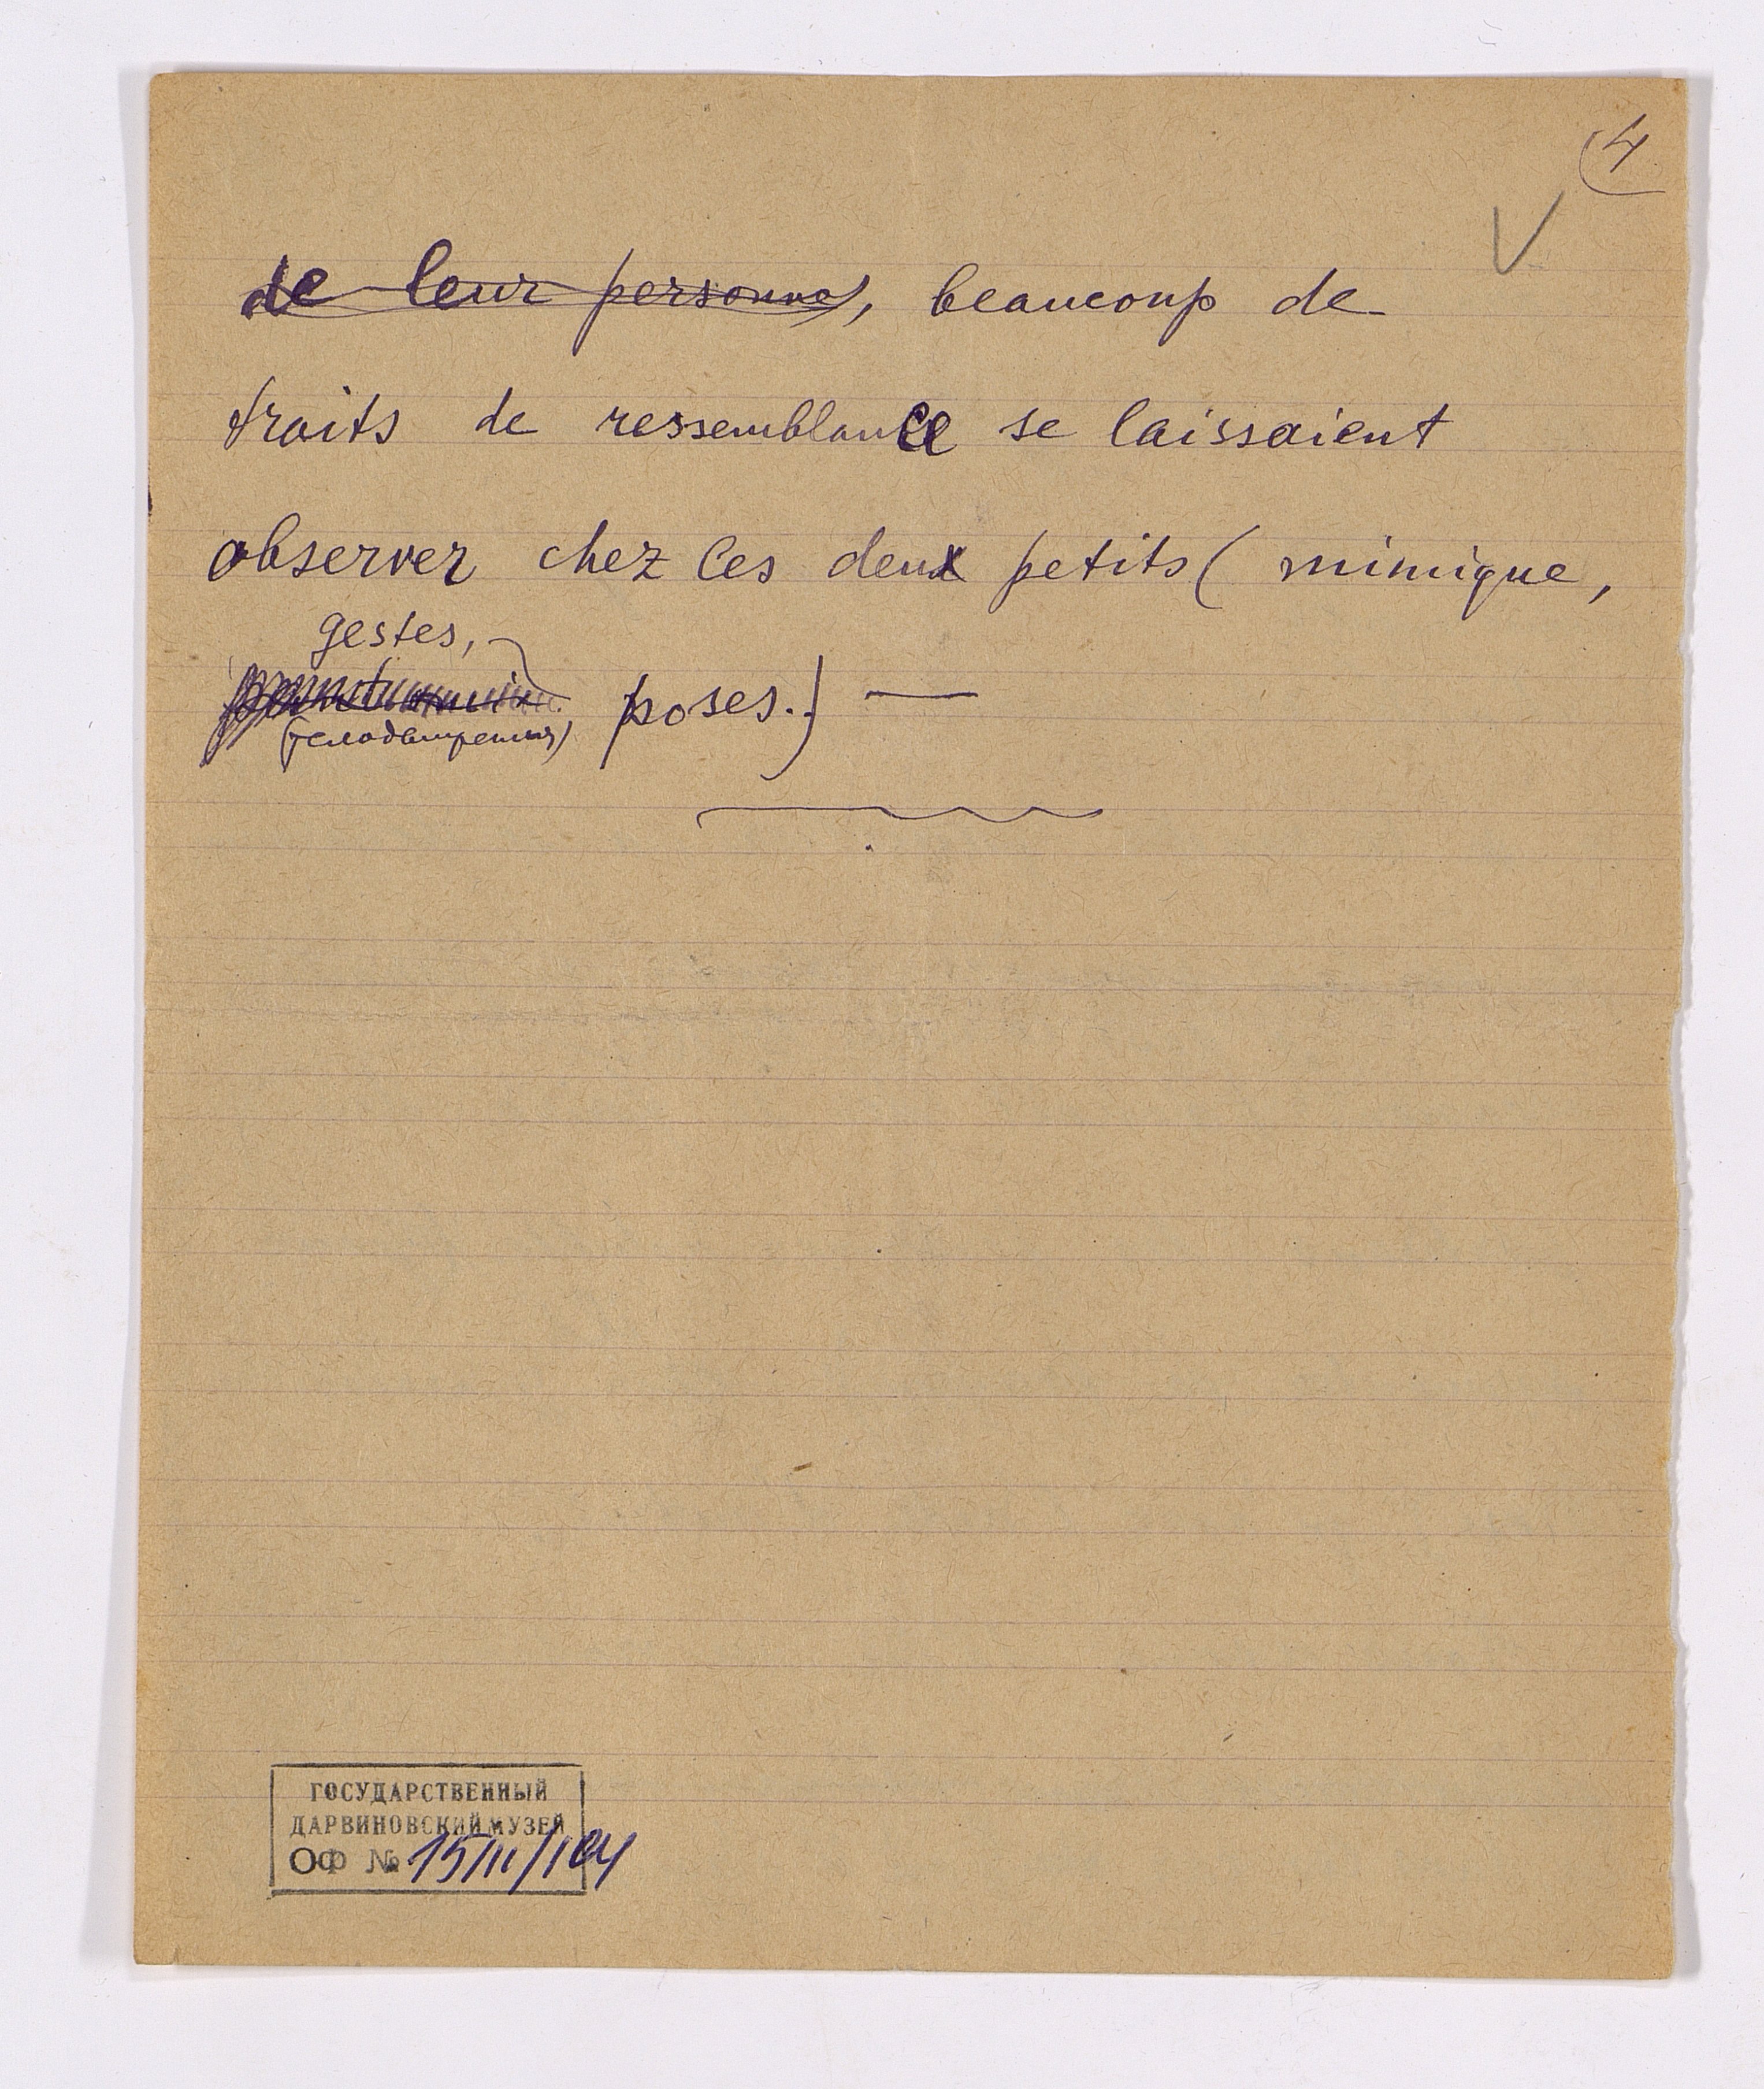 4
de leur personne, beaucoup de
traits de ressemblance se laissaient
observer chez les deux petits ( mimique,
gestes,
poses.) —
(телодвижения)
ГОСУДАРСТВЕННЫЙ
ДАРВИНОВСКИЙ МУЗЕЙ
ОФ №